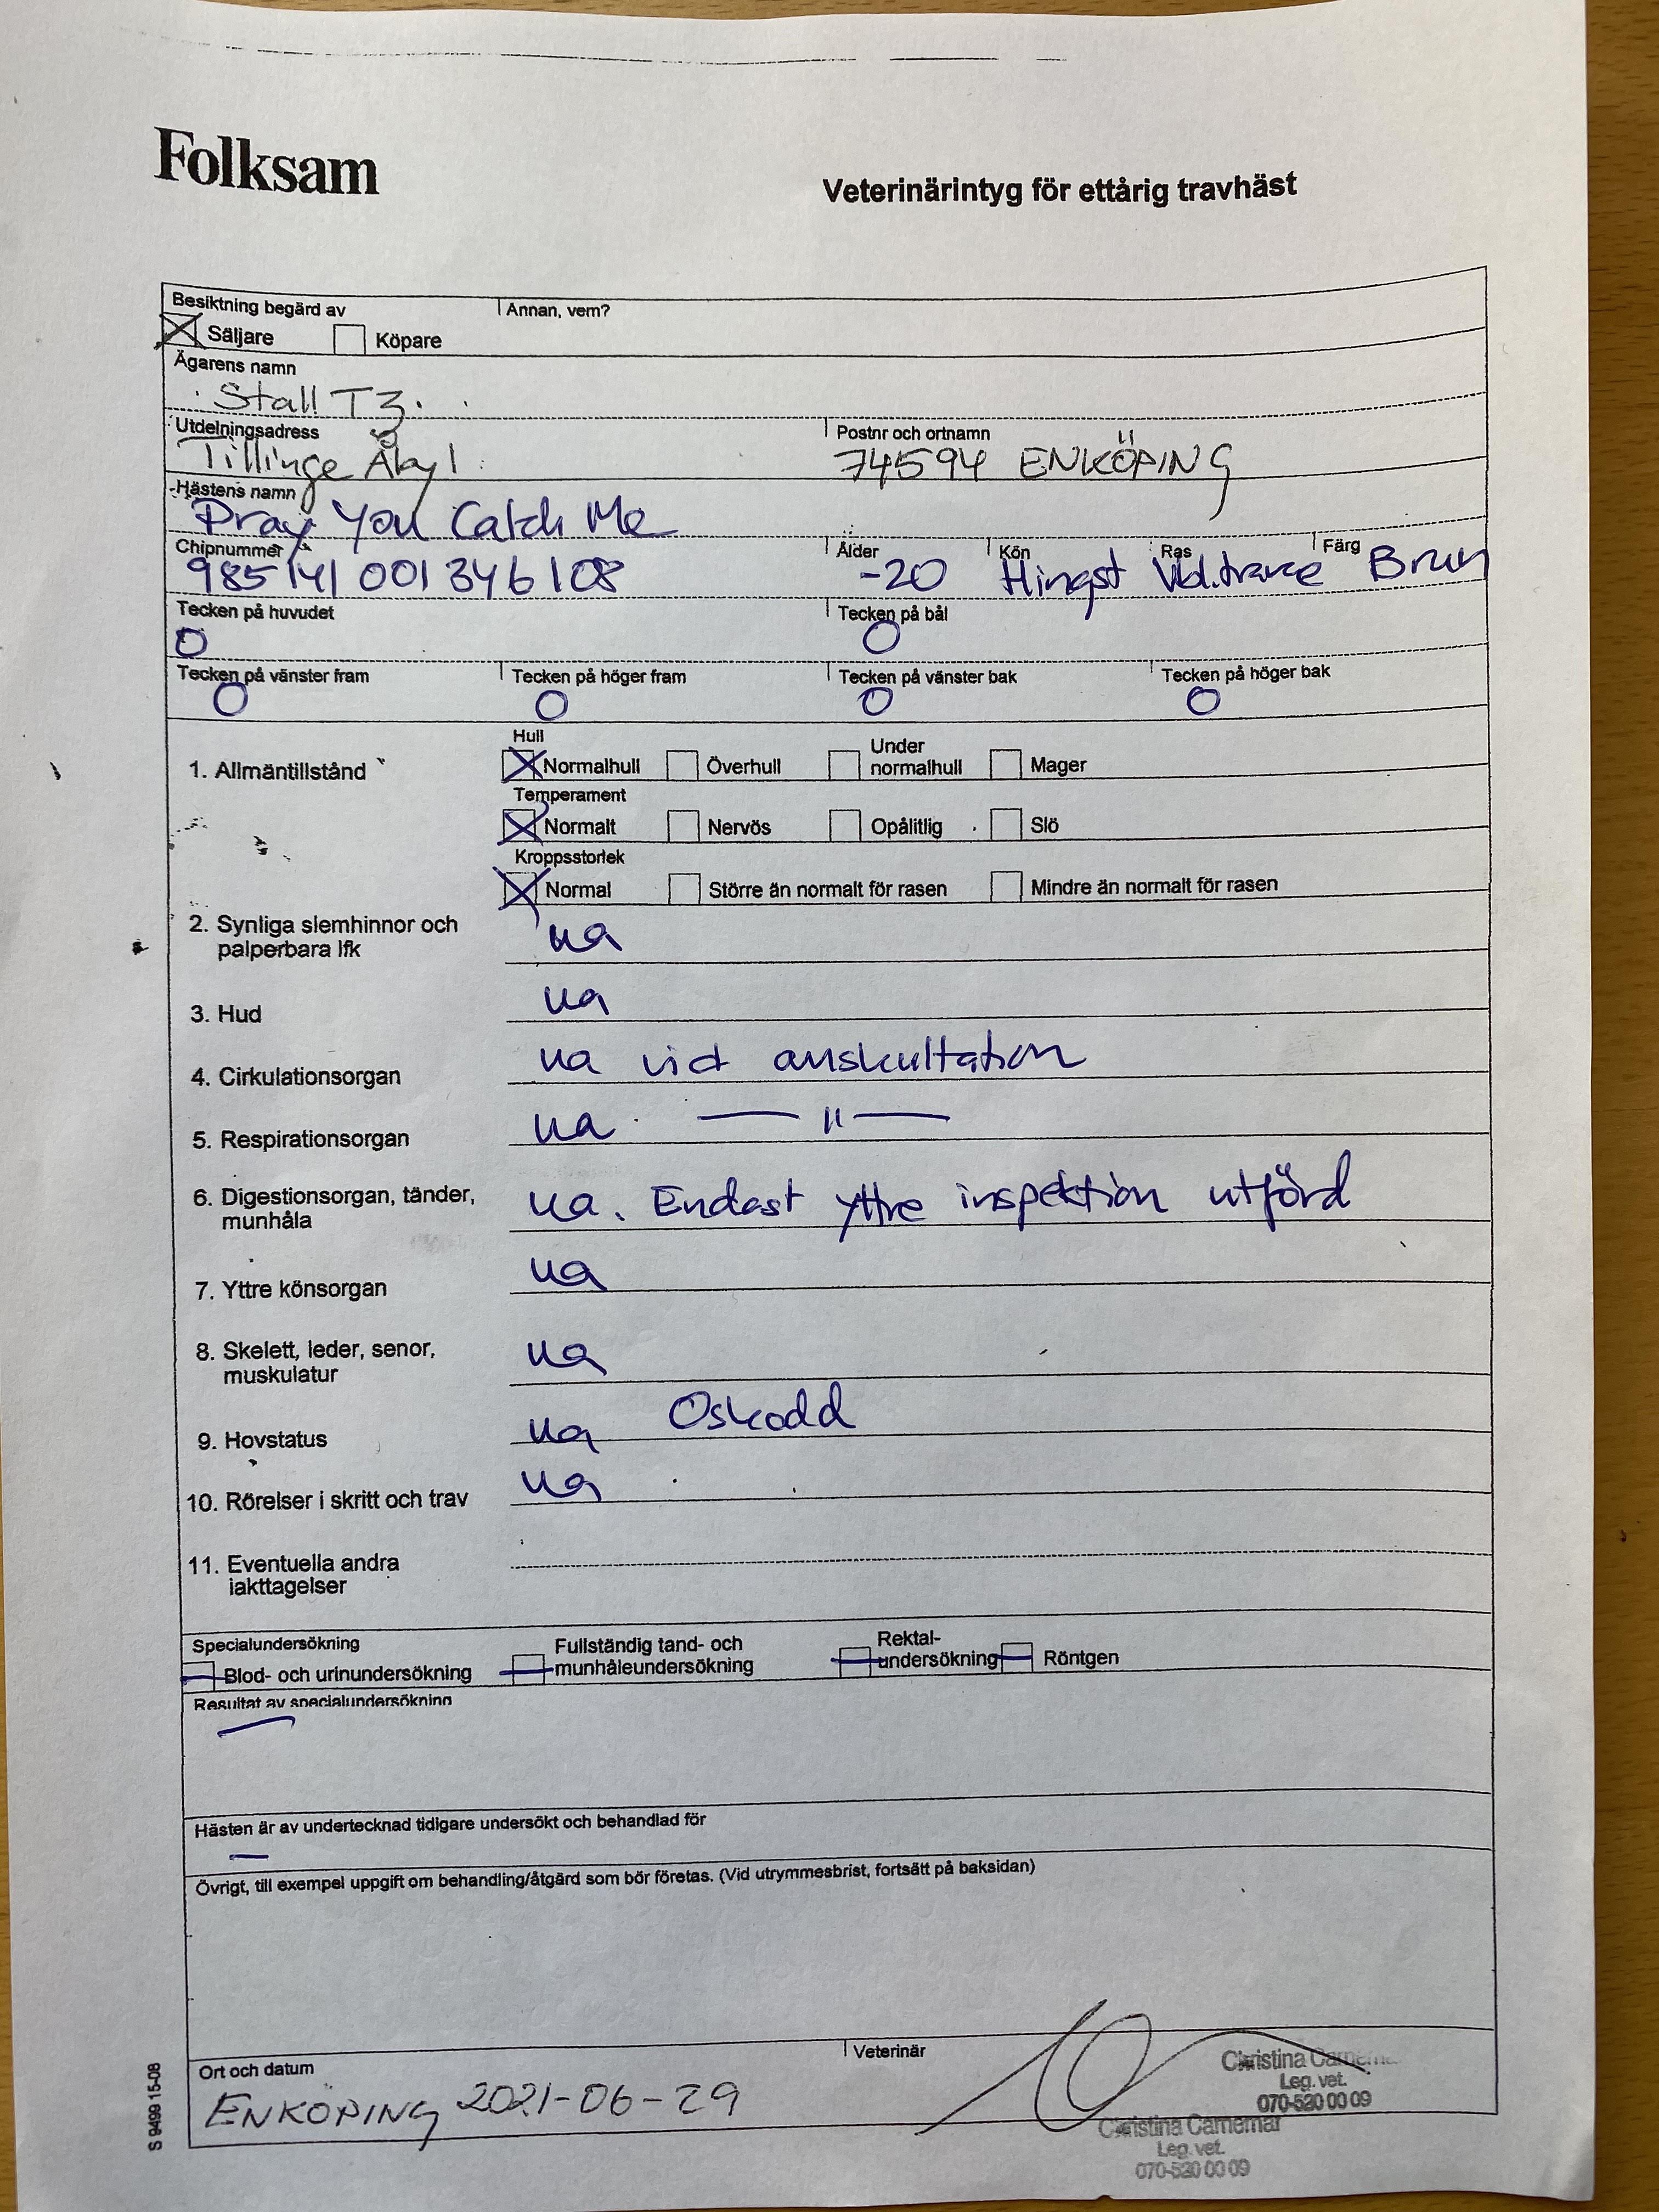 Folksam
Veterinärintyg för ettårig travhäst
Besiktning begärd av
Annan, vem?
Säljare Köpare
Ägarens namn
Stall TZ.
Utdelningsadress Postnr och ortnamn
Tillinge Åby 1 74594 ENKÖPING
Hästens namn
Pray You Catch Me
Chipnummer Ålder Kön Ras Färg
985141001346108 -20 Hingst Brun
Tecken på huvudet Tecken på bål
0 0
Tecken på vänster fram Tecken på höger fram Tecken på vänster bak Tecken på höger bak
0 0 0 0
Hull
1. Allmäntillstånd Normalhull Överhull Under normalhull Mager
Temperament
Normalt Nervös Opålitlig Slö
Kroppsstorlek
Normal Större än normalt för rasen Mindre än normalt för rasen
2. Synliga slemhinnor och ua
palperbara lfk
3. Hud ua
4. Cirkulationsorgan ua vid auskultation
5. Respirationsorgan ua — 11 —
6. Digestionsorgan, tänder, ua. Endast yttre inspektion utförd
munhåla
7. Yttre könsorgan ua
8. Skelett, leder, senor, ua
muskulatur
9. Hovstatus ua Oskodd
10. Rörelser i skritt och trav ua
11. Eventuella andra
iakttagelser
Specialundersökning
Blod- och urinundersökning Fullständig tand- och munhåleundersökning Rektal-undersökning Röntgen
Resultat av specialundersökning
—
Hästen är av undertecknad tidigare undersökt och behandlad för
—
Övrigt, till exempel uppgift om behandling/åtgärd som bör företas. (Vid utrymmesbrist, fortsätt på baksidan)
Ort och datum Veterinär
ENKÖPING 2021-06-29
Christina Camemar
Leg. vet.
070-520 00 09
Christina Camemar
Leg. vet.
070-520 00 09
S 9499 15-08